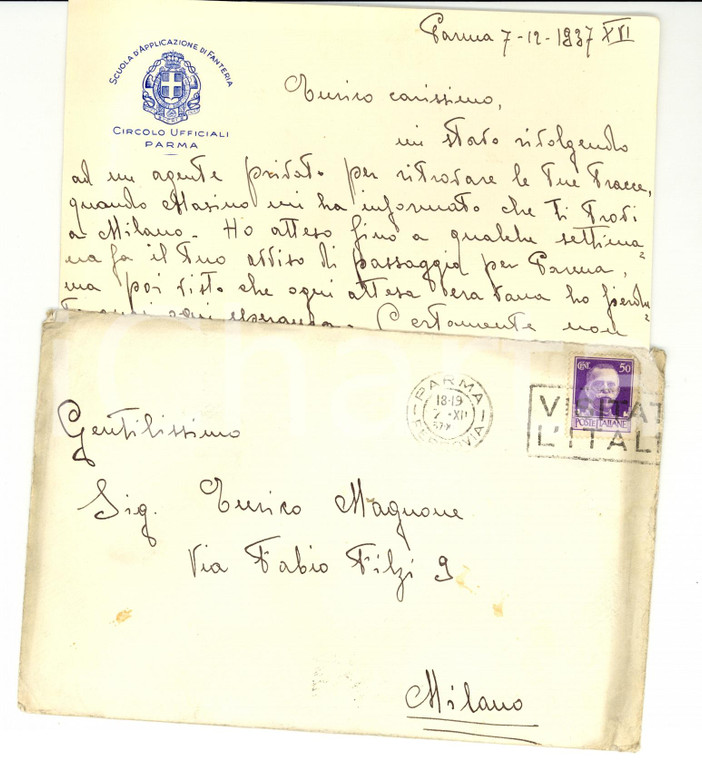 Parma 7-12-1937 XVI
SCUOLA D'APPLICAZIONE DI FANTERIA
CIRCOLO UFFICIALI
PARMA
Enrico carissimo,
mi stavo rivolgendo
ad un agente privato per ritrovare le tue tracce,
quando Masino mi ha informato che ti trovi
a Milano. Ho atteso fino a qualche settima=
na fa il tuo avviso di passaggio per Parma,
ma poi visto che ogni attesa era vana ho perdu=
to ogni speranza. Certamente non
CENT. 50
POSTE ITALIANE
PARMA
18-19
XII
FERROVIA
VISITAT
L'ITALI
Gentilissimo
Sig. Enrico Magnone
Via Fabio Filzi 9
Milano